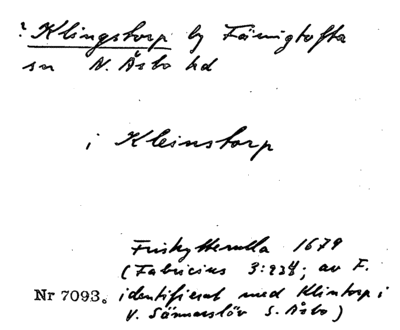 ? Klingstorp by Färingtofta
sn N. Åsbo hd
i Kleinstorp
Friskytterulla 1679
(Fabricius 3:234; av F.
Nr 7093. identifierat med Klintorp i
V. Sönnarslöv S. Åsbo)